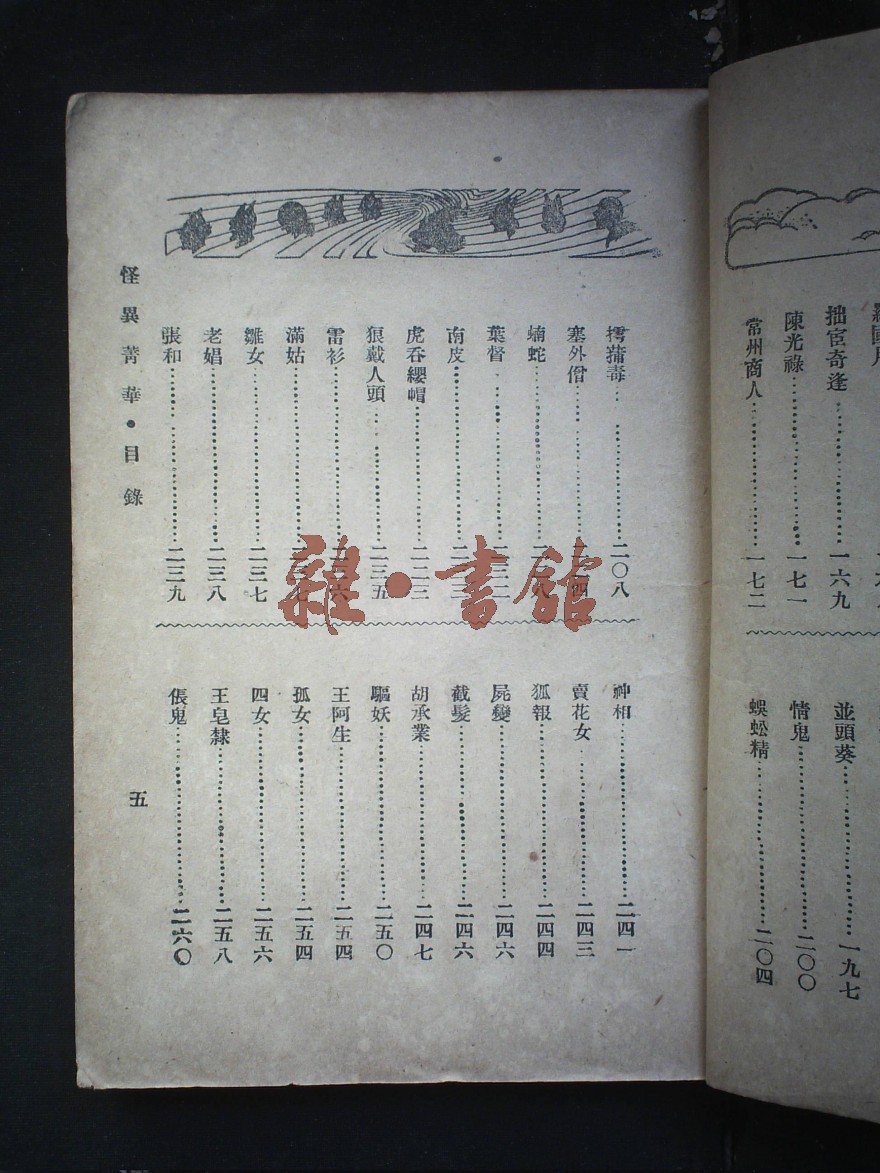 常州商人 一七二
陳光祿 一七一
拙宦奇逢 一六九
蜈蚣精 二〇四
情鬼 二〇〇
並頭葵 一九七
怪異菁華·目錄
五
樗蒲毒 二〇八
塞外僧
蝻蛇
葉督
南皮
虎吞纓帽 二二三
狼戴人頭 二三五
雷衫
滿姑
雛女 二三七
老娼 二三八
張和 二三九
神相 二四一
賣花女 二四三
狐報 二四四
屍變 二四六
截髮 二四六
胡承業 二四七
驅妖 二五〇
王阿生 二五四
孤女 二五四
四女 二五六
王皂隸 二五八
倀鬼 二六〇
雜·書館